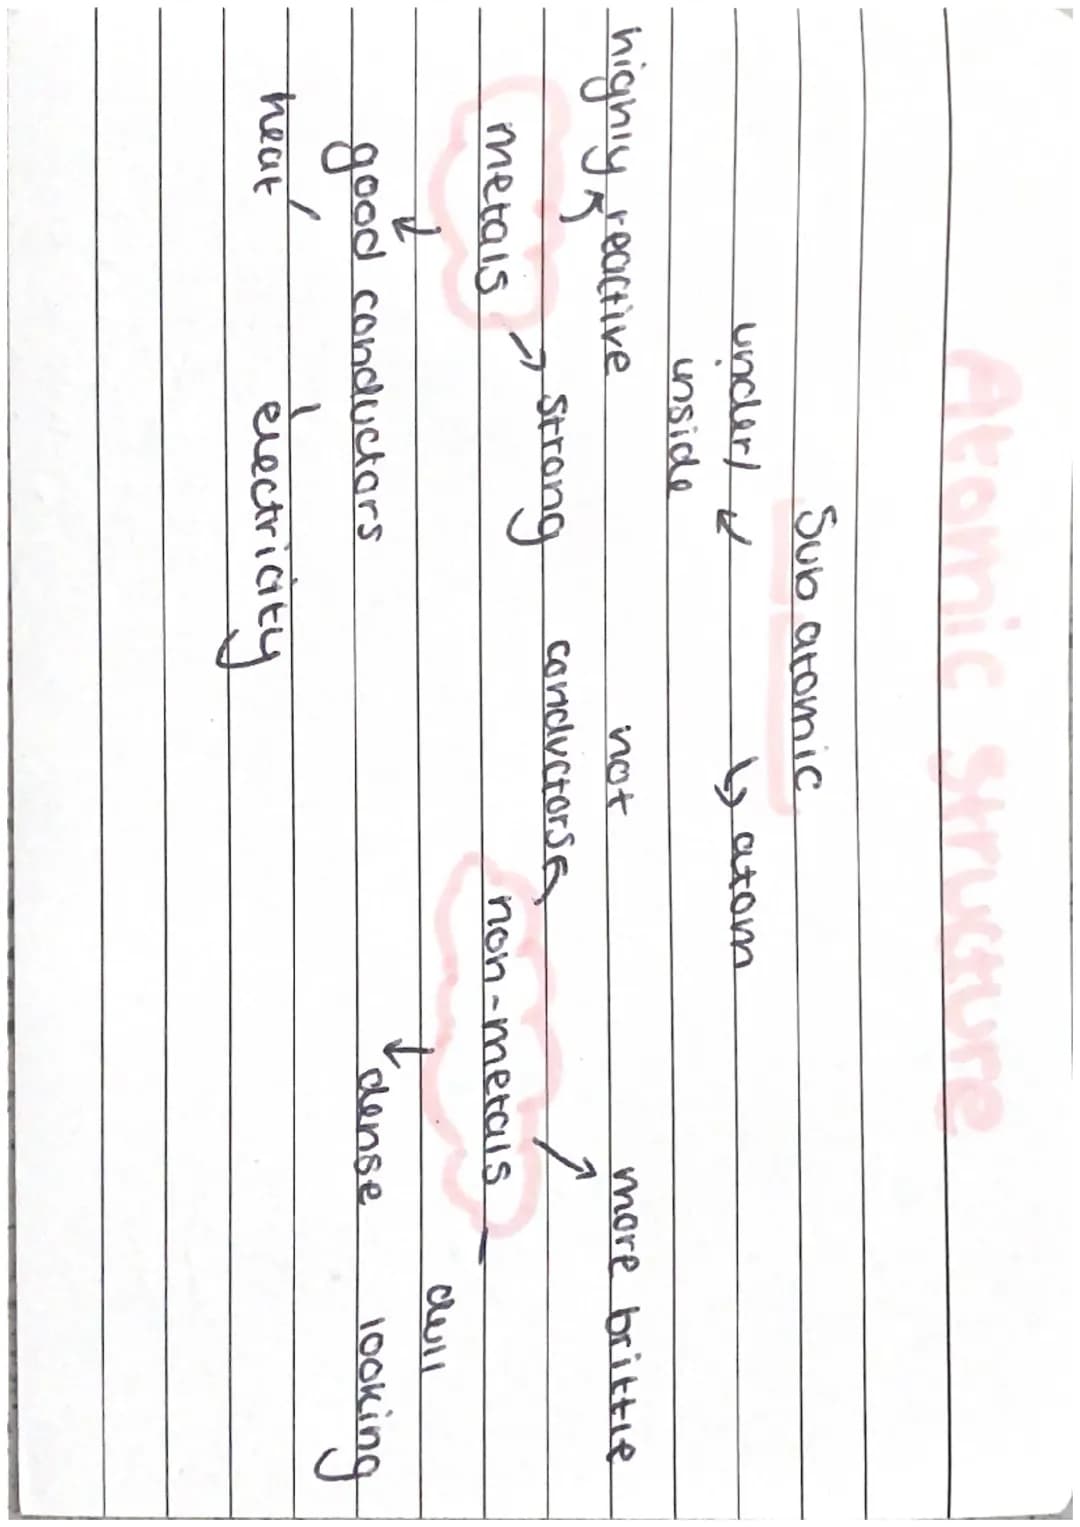 Atomic structure
Sub atomic
under/ atom
inside
highly reactive not more brittle
strong conductors
metals non-metals
dull
good conductors dense looking
heat electricity